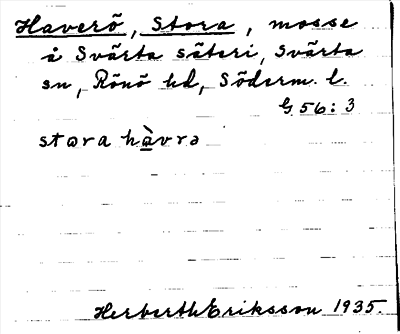 Haverö, Stora, mosse
å Svärta säteri, Svärta
sn, Rönö hd, Söderm. l.
G 56:3
stora hàvrə
Herberth Eriksson 1935.